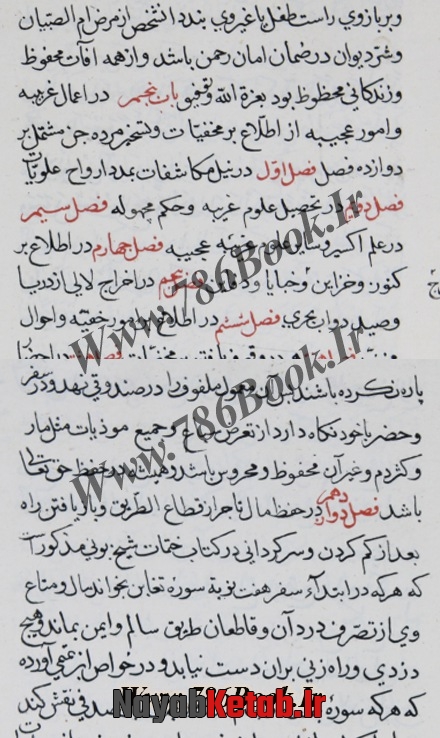 و بر بازوي راست طفل يا غيروي بندد انشخص از مرض ام الصبيان
و شر ديوان در ضمان امان رحمن باشد و از همه آفات محفوظ
و زندكاني محظوظ بود بعزة الله و توفيقه باب پنجم در اعمال غريبه
و امور عجيبه از اطلاع بر مخفيات و تسخير مرده جن مشتمل بر
دوازده فصل فصل اول در نيل مكاشفات بمدد ارواح علويات
فصل دويم در تحصيل علوم غريبه و حكم مجهوله فصل سيم
در علم اكسير و ساير علوم غريبه عجيبه فصل چهارم در اطلاع بر
كنوز و خزاين و خبايا و دفاين فصل پنجم در اخراج لالي از دريا
وصيد دواب بحري فصل ششم در اطلاع بر امور خفيه و احوال
پاره نكرده باشند قرآن و معمول ملفوفه را در صندوقي نهد و در سفر
و حضر با خود نكاه دارد از تعرض سباع و جميع موذيات مثل مار
و كژدم و غير آن محفوظ و محروس باشد و هميشه در حفظ حق تعالي
باشد فصل دوازدهم در حفظ مال تاجر از قطاع الطريق و باز يافتن راه
بعد از كم كردن و سركرداني در كتاب ختمات شيخ بوني مذكور است
كه هر كه در ابتداء سفر هفت نوبة سوره تغابن بخواند مال و متاع
وي از تصرف دزدان و قاطعان طريق سالم و ايمن بماند و هيچ
دزدي و راه زني بران دست نيابد و در خواص از تميمي آورده
كه هر كه سوره
در نقش كند
Www.786Book.Ir
Www.786Book.Ir
Www.786Book.Ir
NayabKetab.Ir